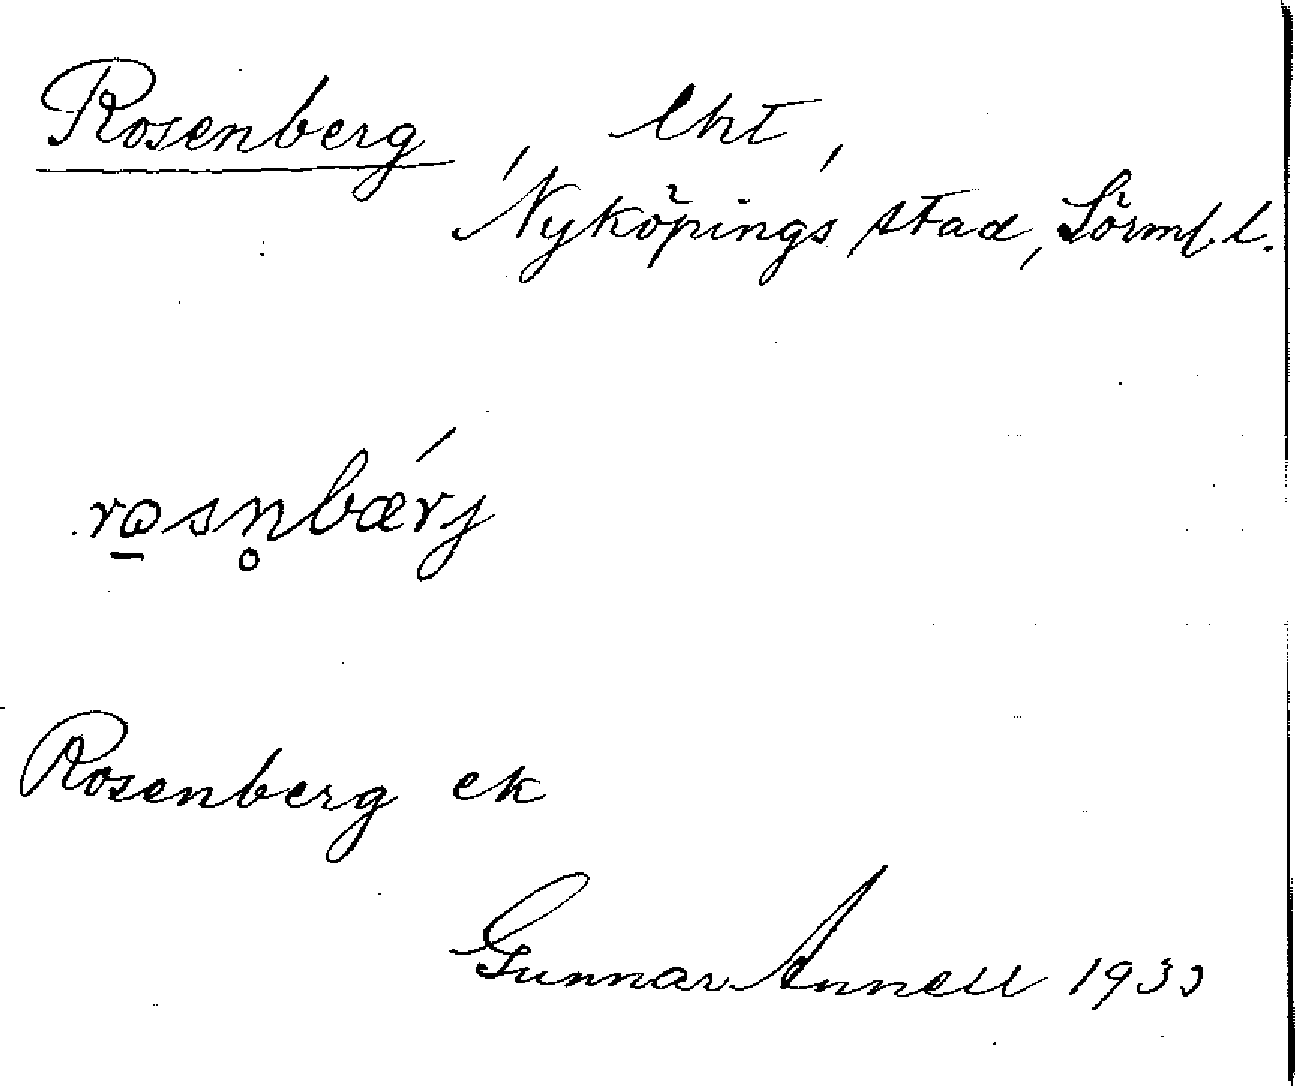 Rosenberg, lht,
Nyköpings stad, Sörml. l.
rɷ̱sn̥bærj
Rosenberg ek
Gunnar Annell 1933